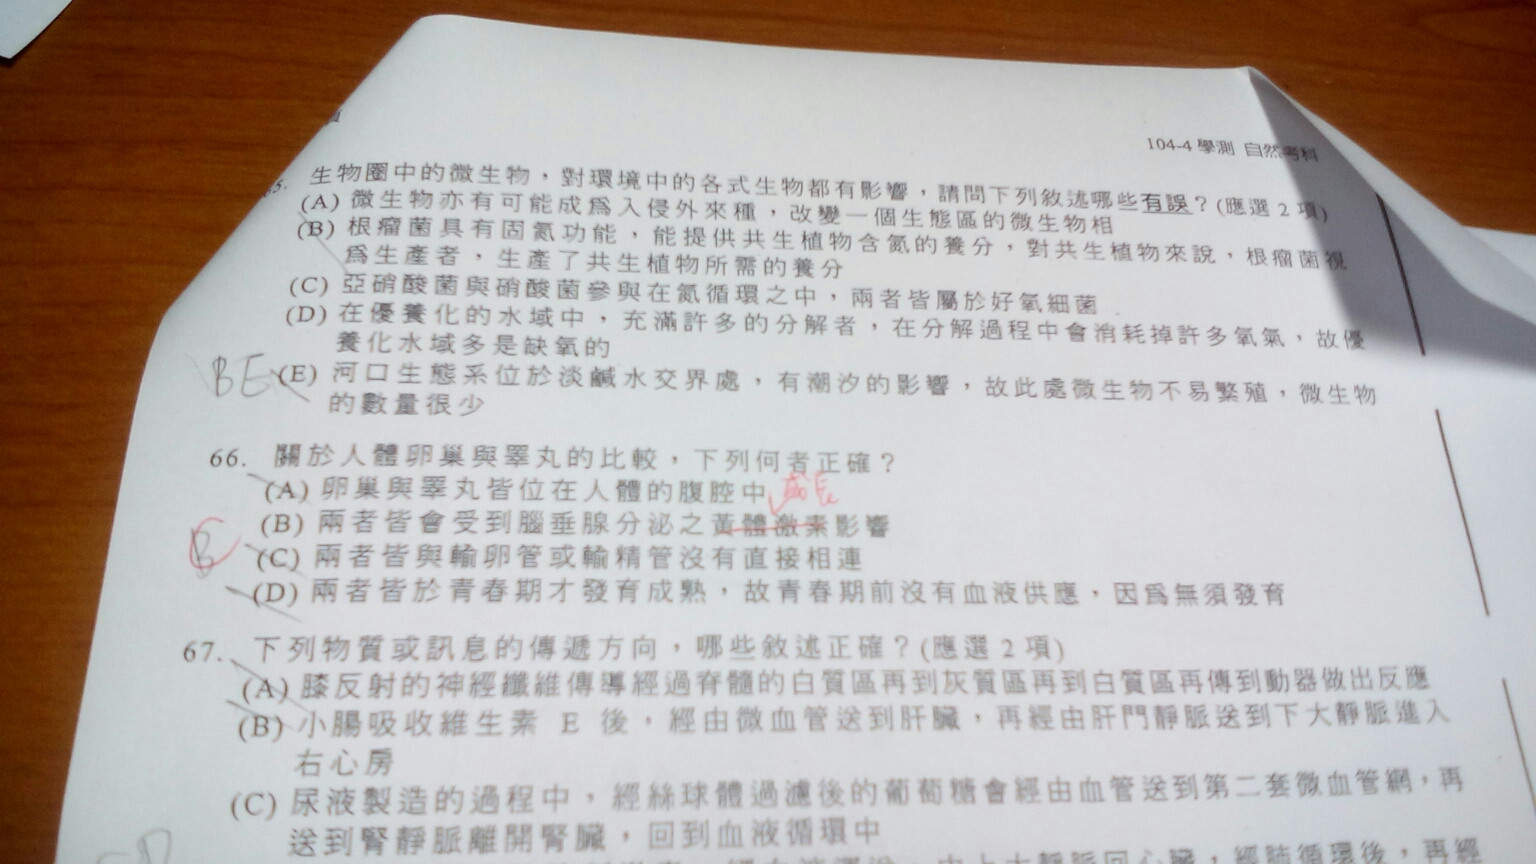 104-4 學測 自然考科
65. 生物圈中的微生物，對環境中的各式生物都有影響，請問下列敘述哪些有誤？(應選 2 項)
(A) 微生物亦有可能成為入侵外來種，改變一個生態區的微生物相
(B) 根瘤菌具有固氮功能，能提供共生植物含氮的養分，對共生植物來說，根瘤菌視
為生產者，生產了共生植物所需的養分
(C) 亞硝酸菌與硝酸菌參與在氮循環之中，兩者皆屬於好氧細菌
(D) 在優養化的水域中，充滿許多的分解者，在分解過程中會消耗掉許多氧氣，故優
養化水域多是缺氧的
BE (E) 河口生態系位於淡鹹水交界處，有潮汐的影響，故此處微生物不易繁殖，微生物
的數量很少
66. 關於人體卵巢與睪丸的比較，下列何者正確？
(A) 卵巢與睪丸皆位在人體的腹腔中
成長
(B) 兩者皆會受到腦垂腺分泌之黃體激素影響
C (C) 兩者皆與輸卵管或輸精管沒有直接相連
(D) 兩者皆於青春期才發育成熟，故青春期前沒有血液供應，因為無須發育
67. 下列物質或訊息的傳遞方向，哪些敘述正確？(應選 2 項)
(A) 膝反射的神經纖維傳導經過脊髓的白質區再到灰質區再到白質區再傳到動器做出反應
(B) 小腸吸收維生素 E 後，經由微血管送到肝臟，再經由肝門靜脈送到下大靜脈進入
右心房
(C) 尿液製造的過程中，經絲球體過濾後的葡萄糖會經由血管送到第二套微血管網，再
送到腎靜脈離開腎臟，回到血液循環中
上大靜脈回心臟，經肺循環後，再經